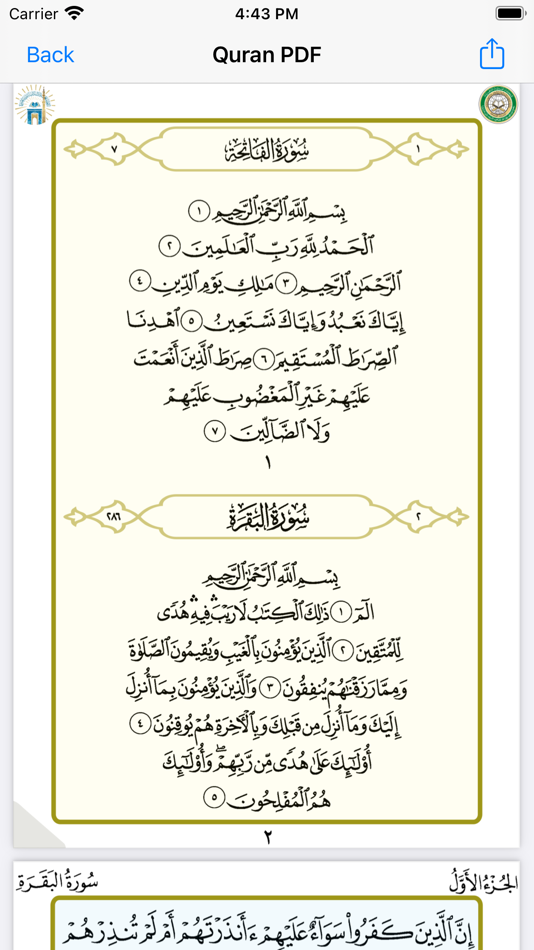 Carrier 4:43 PM
Back Quran PDF
١ سُورَةُ الفَاتِحَةِ ٧
بِسْمِ ٱللَّهِ ٱلرَّحْمَٰنِ ٱلرَّحِيمِ ١
ٱلْحَمْدُ لِلَّهِ رَبِّ ٱلْعَٰلَمِينَ ٢
ٱلرَّحْمَٰنِ ٱلرَّحِيمِ ٣ مَٰلِكِ يَوْمِ ٱلدِّينِ ٤
إِيَّاكَ نَعْبُدُ وَإِيَّاكَ نَسْتَعِينُ ٥ ٱهْدِنَا
ٱلصِّرَٰطَ ٱلْمُسْتَقِيمَ ٦ صِرَٰطَ ٱلَّذِينَ أَنْعَمْتَ
عَلَيْهِمْ غَيْرِ ٱلْمَغْضُوبِ عَلَيْهِمْ
وَلَا ٱلضَّآلِّينَ ٧
١
٢ سُورَةُ البَقَرَةِ ٢٨٦
بِسْمِ ٱللَّهِ ٱلرَّحْمَٰنِ ٱلرَّحِيمِ
الٓمٓ ١ ذَٰلِكَ ٱلْكِتَٰبُ لَا رَيْبَۛ فِيهِۛ هُدًى
لِّلْمُتَّقِينَ ٢ ٱلَّذِينَ يُؤْمِنُونَ بِٱلْغَيْبِ وَيُقِيمُونَ ٱلصَّلَوٰةَ
وَمِمَّا رَزَقْنَٰهُمْ يُنفِقُونَ ٣ وَٱلَّذِينَ يُؤْمِنُونَ بِمَآ أُنزِلَ
إِلَيْكَ وَمَآ أُنزِلَ مِن قَبْلِكَ وَبِٱلْأٓخِرَةِ هُمْ يُوقِنُونَ ٤
أُو۟لَٰٓئِكَ عَلَىٰ هُدًى مِّن رَّبِّهِمْۖ وَأُو۟لَٰٓئِكَ
هُمُ ٱلْمُفْلِحُونَ ٥
٢
الجُزْءُ الأَوَّلُ سُورَةُ البَقَرَةِ
إِنَّ ٱلَّذِينَ كَفَرُوا۟ سَوَآءٌ عَلَيْهِمْ ءَأَنذَرْتَهُمْ أَمْ لَمْ تُنذِرْهُمْ